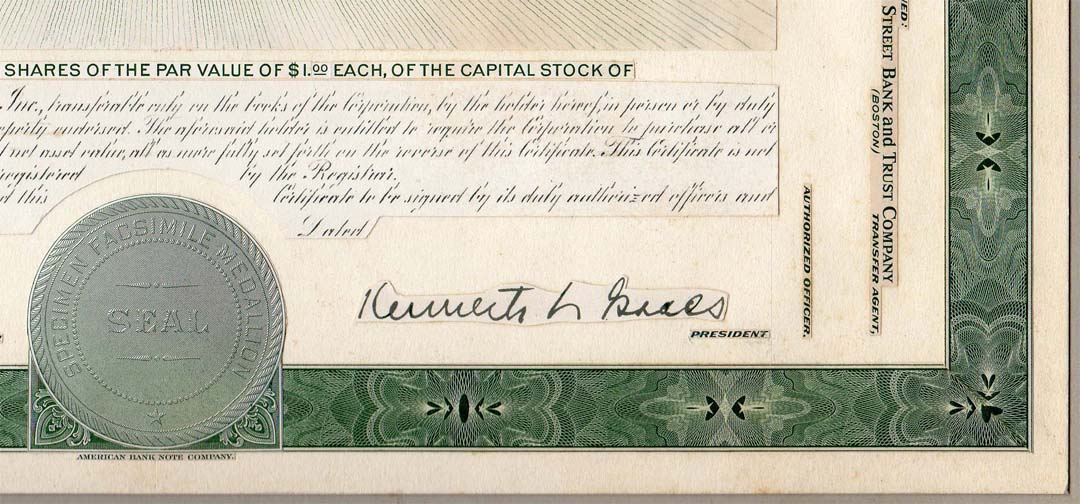 SHARES OF THE PAR VALUE OF $1.00 EACH, OF THE CAPITAL STOCK OF
Inc., transferable only on the books of the Corporation, by the holder hereof, in person or by duly
properly endorsed. The aforesaid holder is entitled to require the Corporation to purchase all or
net asset value, all as more fully set forth on the reverse of this Certificate. This Certificate is not
registered by the Registrar.
this Certificate to be signed by its duly authorized officers and
Dated
SPECIMEN FACSIMILE MEDALLION
SEAL
Kenneth L Isaacs
PRESIDENT.
AMERICAN BANK NOTE COMPANY.
AUTHORIZED OFFICER.
STREET BANK and TRUST COMPANY
(BOSTON)
TRANSFER AGENT,